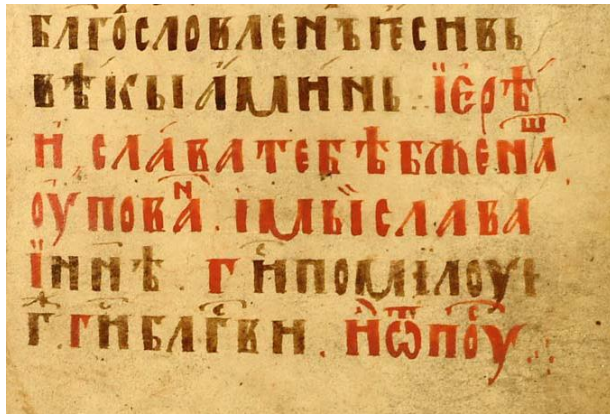 блг҃ословленъ҆еснвь
вѣкыа҆минь. їе҆рѣ
й. славатебѣбж҃ена ш҃
оупован҃а. імьіслава
їн҃нѣ. г҃ и҆помілоуі
г҃. г҃и҃блг҃ви. й ѿпоу с҃